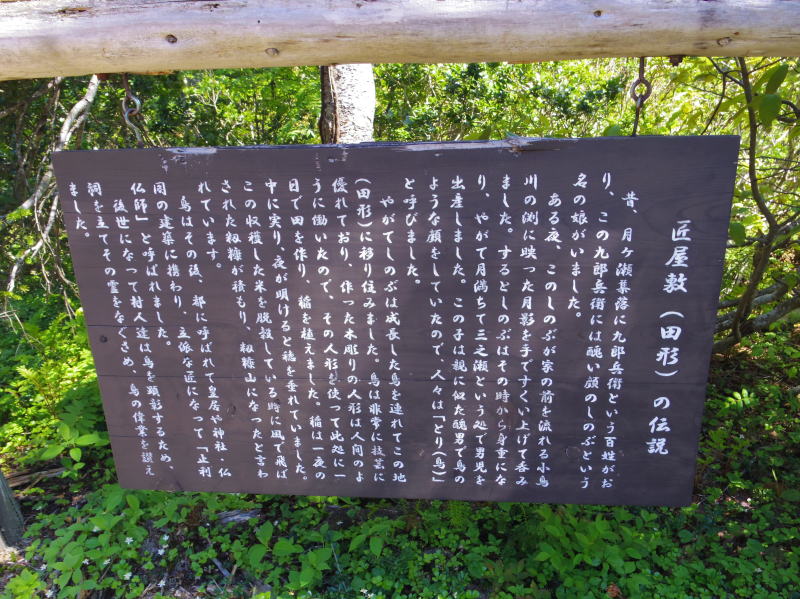 匠屋敷（田形）の伝説
昔、月ヶ瀬暮落に九郎兵衛という百姓がお
り、この九郎兵衛には醜い顔のしのぶという
名の娘がいました。
ある夜、このしのぶが家の前を流れる小鳥
川の渕に映った月影を手ですくい上げて呑み
ました。するとしのぶはその時から身重にな
り、やがて月満ちて三之瀬という処で男児を
出産しました。この子は親に似た醜男で鳥の
ような顔をしていたので、人々は「とり（鳥）」
と呼びました。
やがてしのぶは成長した鳥を連れてこの地
（田形）に移り住みました。鳥は非常に技芸に
優れており、作った木彫りの人形は人間のよ
うに働いたので、その人形を使って此処に一
日で田を作り、稲を植えました。稲は一夜の
中に実り、夜が明けると穂を垂れていました。
この収穫した米を脱穀している時に風で飛ば
された籾糠が積もり、籾糠山になったと言わ
れています。
鳥はその後、都に呼ばれて皇居や神社、仏
閣の建築に携わり、立派な匠になって「止利
仏師」と呼ばれました。
後世になって村人達は鳥を顕彰するため、
祠を立てその霊をなぐさめ、鳥の偉業を讃え
ました。